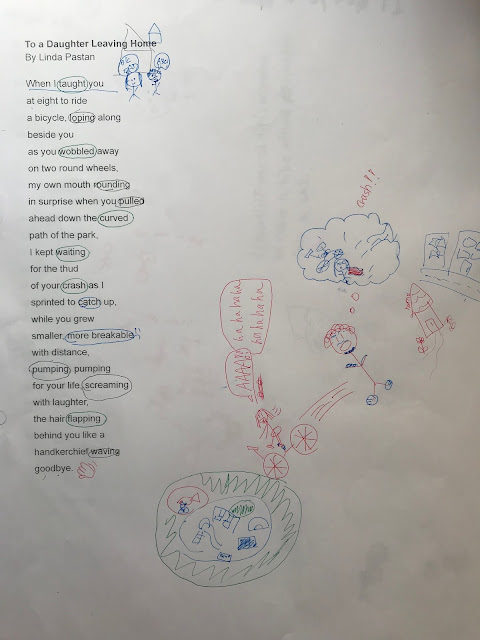 To a Daughter Leaving Home
By Linda Pastan
When I taught you
at eight to ride
a bicycle, loping along
beside you
as you wobbled away
on two round wheels,
my own mouth rounding
in surprise when you pulled
ahead down the curved
path of the park,
I kept waiting
for the thud
of your crash as I
sprinted to catch up,
while you grew
smaller, more breakable
with distance,
pumping, pumping
for your life, screaming
with laughter,
the hair flapping
behind you like a
handkerchief waving
goodbye.
crash!!
ha ha ha ha ha
ha ha ha ha ha